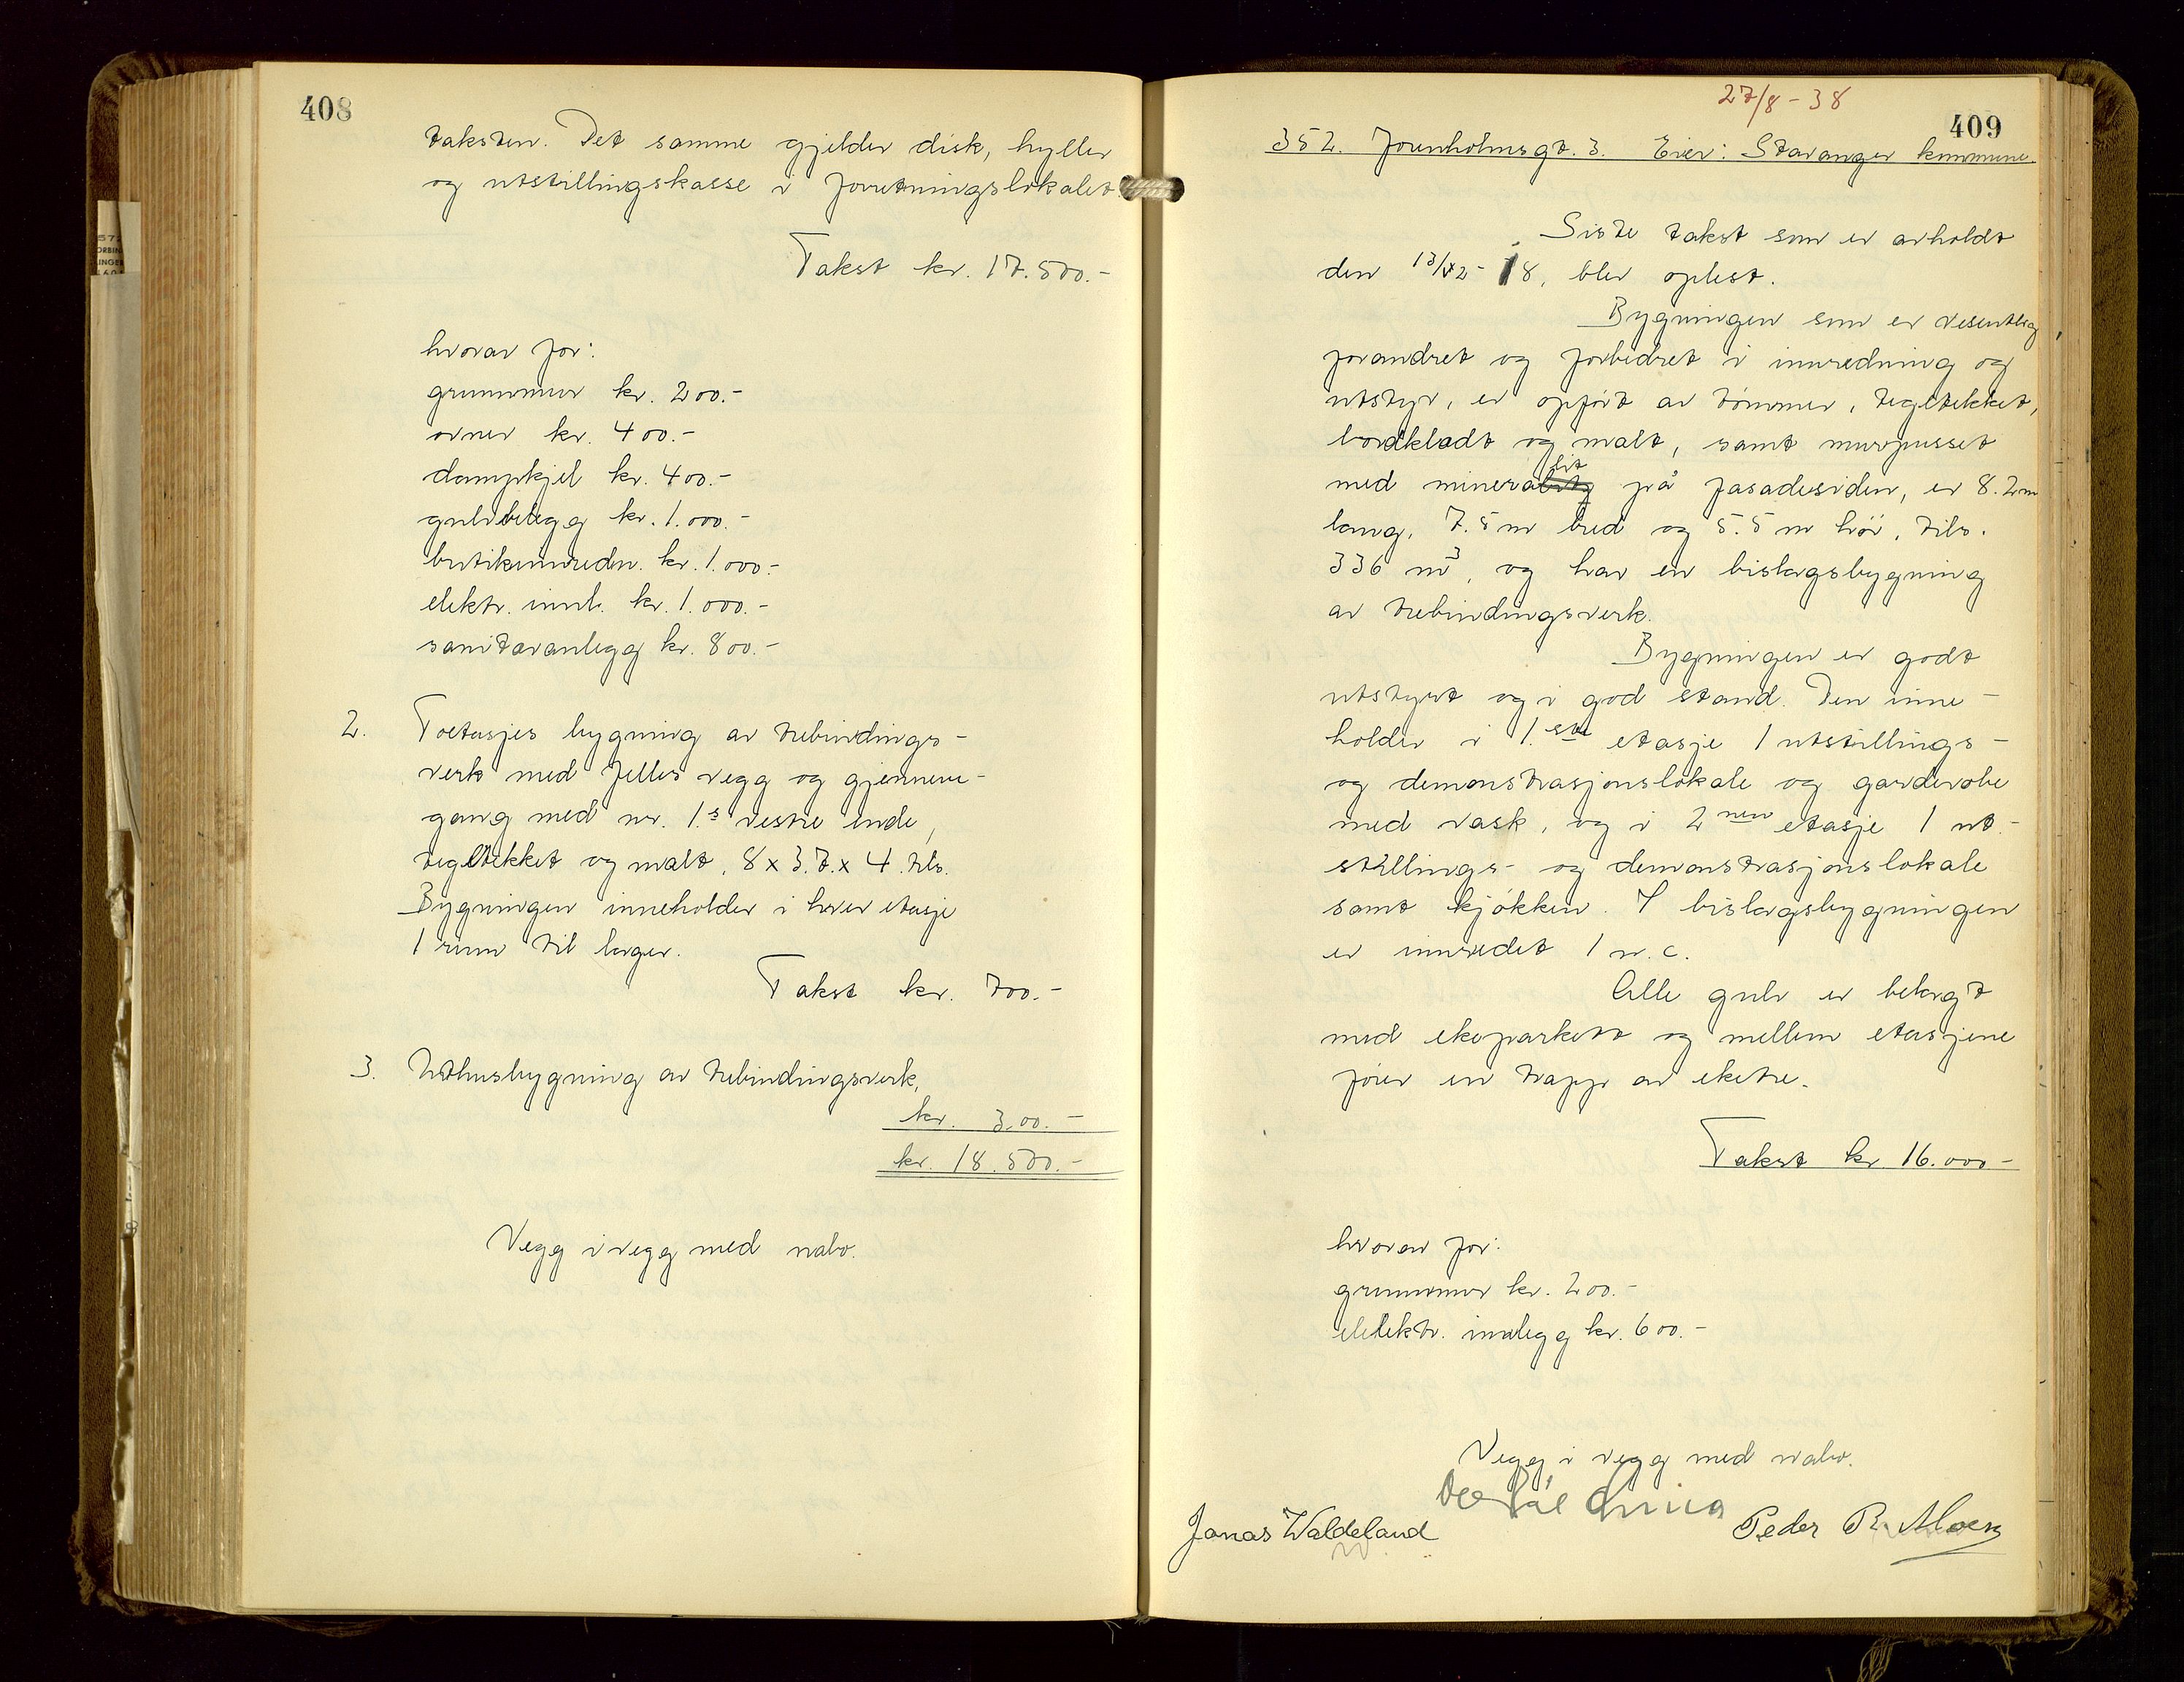 408
taksten. Det samme gjelder disk, hyller
og utstillingskasse i forretningslokalet.
Takst kr. 17.500.-
hvorav for:
grunnmur kr. 200.-
ovner kr. 400.-
dampkjel kr. 400.-
gulvbelegg kr. 1.000.-
butikinnredn. kr. 1.000.-
elektr. innl. kr. 1.000.-
sanitæranlegg kr. 800.-
2. Toetasjes bygning av trebindings-
verk med felles vegg og gjennem-
gang med nr. 1.s vestre ende,
tegltekket og malt. 8 x 3.7. x 4. tils.
Bygningen inneholder i hver etasje
1 rum til lager.
Takst kr. 700.-
3. Uthusbygning av trebindingsverk,
kr. 300.-
kr. 18.500.-
Vegg i vegg med nabo.
27/8-38
409
352. Jorenholmsgt. 3. Eier: Stavanger kommune.
Siste takst som er avholdt
den 13/12-18, blev oplest.
Bygningen som er vesentlig
forandret og forbedret i innredning og
utstyr, er opført av tømmer, tegltekket,
bordkledt og malt, samt murpusset
med mineralit på fasadesiden, er 8.2 m
lang, 7.5 m bred og 5.5 m høi, tils.
336 m3, og har en bislagsbygning
av trebindingsverk.
Bygningen er godt
utstyrt og i god stand. Den inne-
holder i 1.ste etasje 1 utstillings-
og demonstrasjonslokale og garderobe
med vask, og i 2nen etasje 1 ut-
stillings- og demonstrasjonslokale
samt kjøkken. I bislagsbygningen
er innredet 1 w.c.
Alle gulv er belagt
med ekeparkett og mellem etasjene
fører en trapp av eketre.
Takst kr. 16.000-
hvorav for:
grunnmur kr. 200.-
elelektr. innlegg kr. 600.-
Vegg i vegg med nabo.
Jonas Waldeland
Peder R. Moen